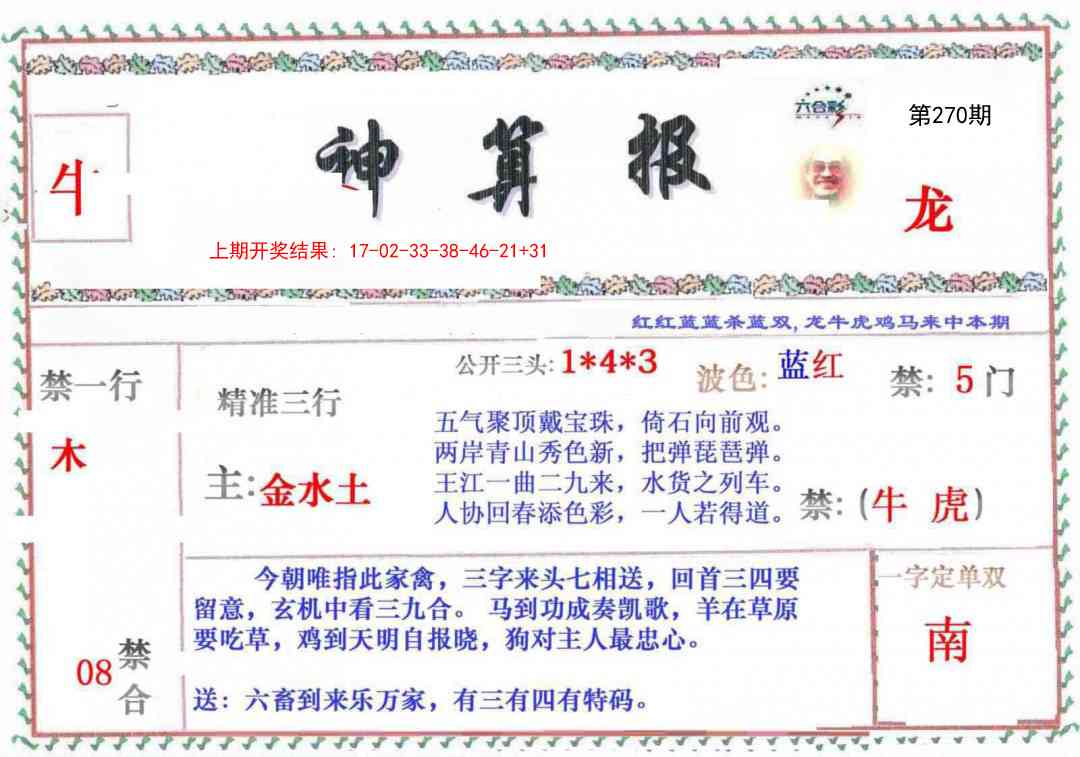 六合彩
第270期
牛
神算报
龙
上期开奖结果：17-02-33-38-46-21+31
红红蓝蓝杀蓝双,龙牛虎鸡马来中本期
公开三头:1*4*3
波色:蓝红
禁：5门
禁一行
木
精准三行
主:金水土
五气聚顶戴宝珠，倚石向前观。
两岸青山秀色新，把弹琵琶弹。
王江一曲二九来，水货之列车。
人协回春添色彩，一人若得道。
禁:(牛 虎)
今朝唯指此家禽，三字来头七相送，回首三四要
留意，玄机中看三九合。 马到功成奏凯歌，羊在草原
要吃草，鸡到天明自报晓，狗对主人最忠心。
送：六畜到来乐万家，有三有四有特码。
一字定单双
南
08禁合